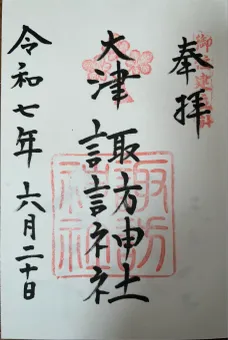 奉拝
大津 諏訪神社
諏訪
神社
令和七年 六月二十日